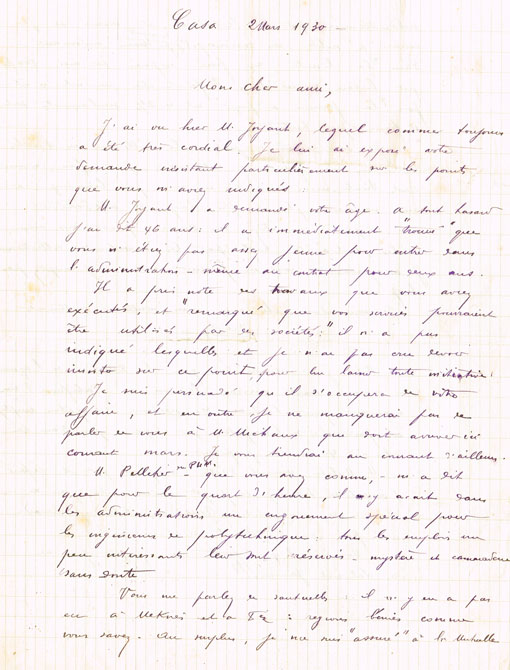 Casa 2 Mars 1930 -
Mons cher ami,
J'ai vu hier M. Joyant, lequel comme toujours
a été très cordial. Je lui ai exposé votre
demande insistant particulièrement sur les points
que vous m'avez indiqués :
M. Joyant a demandé votre âge. A tout hasard
j'ai dit 46 ans : il a immédiatement "trouvé" que
vous n'étiez pas assez jeune pour entrer dans
l'administration - même au contrat pour deux ans.
Il a pris note des travaux que vous avez
exécutés, et "remarqué que vos services pourraient
être utilisés par des sociétés :" il n'a pas
indiqué lesquelles et je n'ai pas cru devoir
insister sur ce point, pour lui laisser toute initiative.
Je suis persuadé qu'il s'occupera de votre
affaire, et en outre, je ne manquerai pas de
parler de vous à M. Michaux que doit arriver ici
courant mars. Je vous tiendrai au courant d'ailleurs.
M. Pelletier - que vous avez connu, - m'a dit
que pour le quart d'heure, il y avait dans
les administrations un engouement spécial pour
les ingénieurs de polytechnique : tous les emplois un
peu intéressants leur sont réservés - mystère et camaraderie
sans doute
Vous me parlez de sauterelles : il n'y en a pas
eu à Meknès et à Fez : régions bénies comme
vous savez. Au surplus, je me suis "assuré" à la Mutuelle